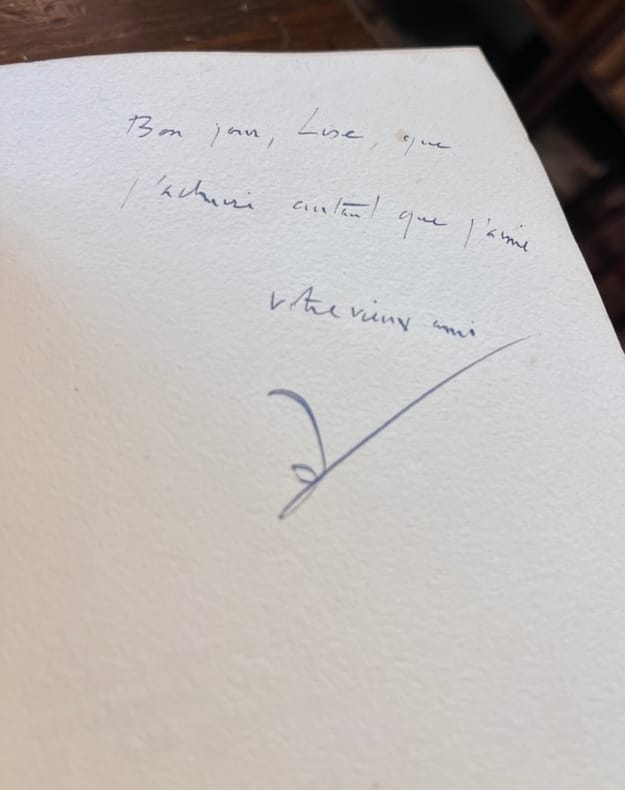 Bon jour, Lise, que
j'admire autant que j'aime
votre vieux ami